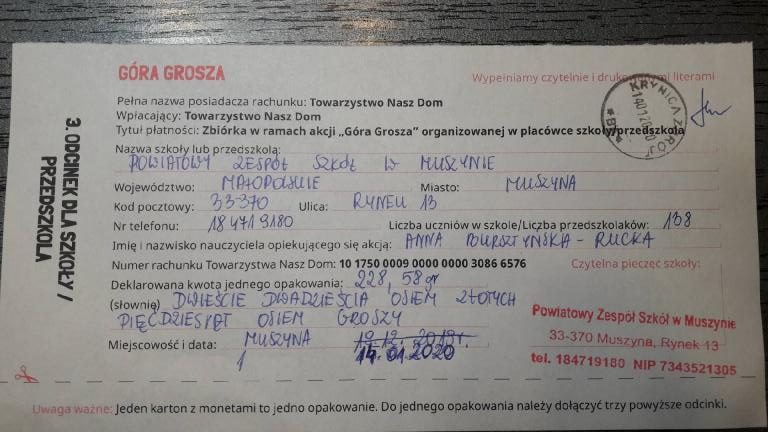 GÓRA GROSZA
Wypełniamy czytelnie i drukowanymi literami
Pełna nazwa posiadacza rachunku: Towarzystwo Nasz Dom
Wpłacający: Towarzystwo Nasz Dom
Tytuł płatności: Zbiórka w ramach akcji „Góra Grosza” organizowanej w placówce szkoły/przedszkola
KRYNICA ZDRÓJ
Nazwa szkoły lub przedszkola:
POWIATOWY ZESPÓŁ SZKÓŁ W MUSZYNIE
Województwo: MAŁOPOLSKIE Miasto: MUSZYNA
Kod pocztowy: 33-370 Ulica: RYNEK 13
Nr telefonu: 18 4719180 Liczba uczniów w szkole/Liczba przedszkolaków: 138
Imię i nazwisko nauczyciela opiekującego się akcją: ANNA BURSZTYŃSKA - RUCKA
Numer rachunku Towarzystwa Nasz Dom: 10 1750 0009 0000 0000 3086 6576 Czytelna pieczęć szkoły:
Deklarowana kwota jednego opakowania: 228, 58 gr
(słownie) DWIEŚCIE DWADZIEŚCIA OSIEM ZŁOTYCH
PIĘĆDZIESIĄT OSIEM GROSZY
Miejscowość i data: MUSZYNA 19.12.2019r.
14.01.2020
1
Powiatowy Zespół Szkół w Muszynie
33-370 Muszyna, Rynek 13
tel. 184719180 NIP 7343521305
3. ODCINEK DLA SZKOŁY /
PRZEDSZKOLA
Uwaga ważne: Jeden karton z monetami to jedno opakowanie. Do jednego opakowania należy dołączyć trzy powyższe odcinki.